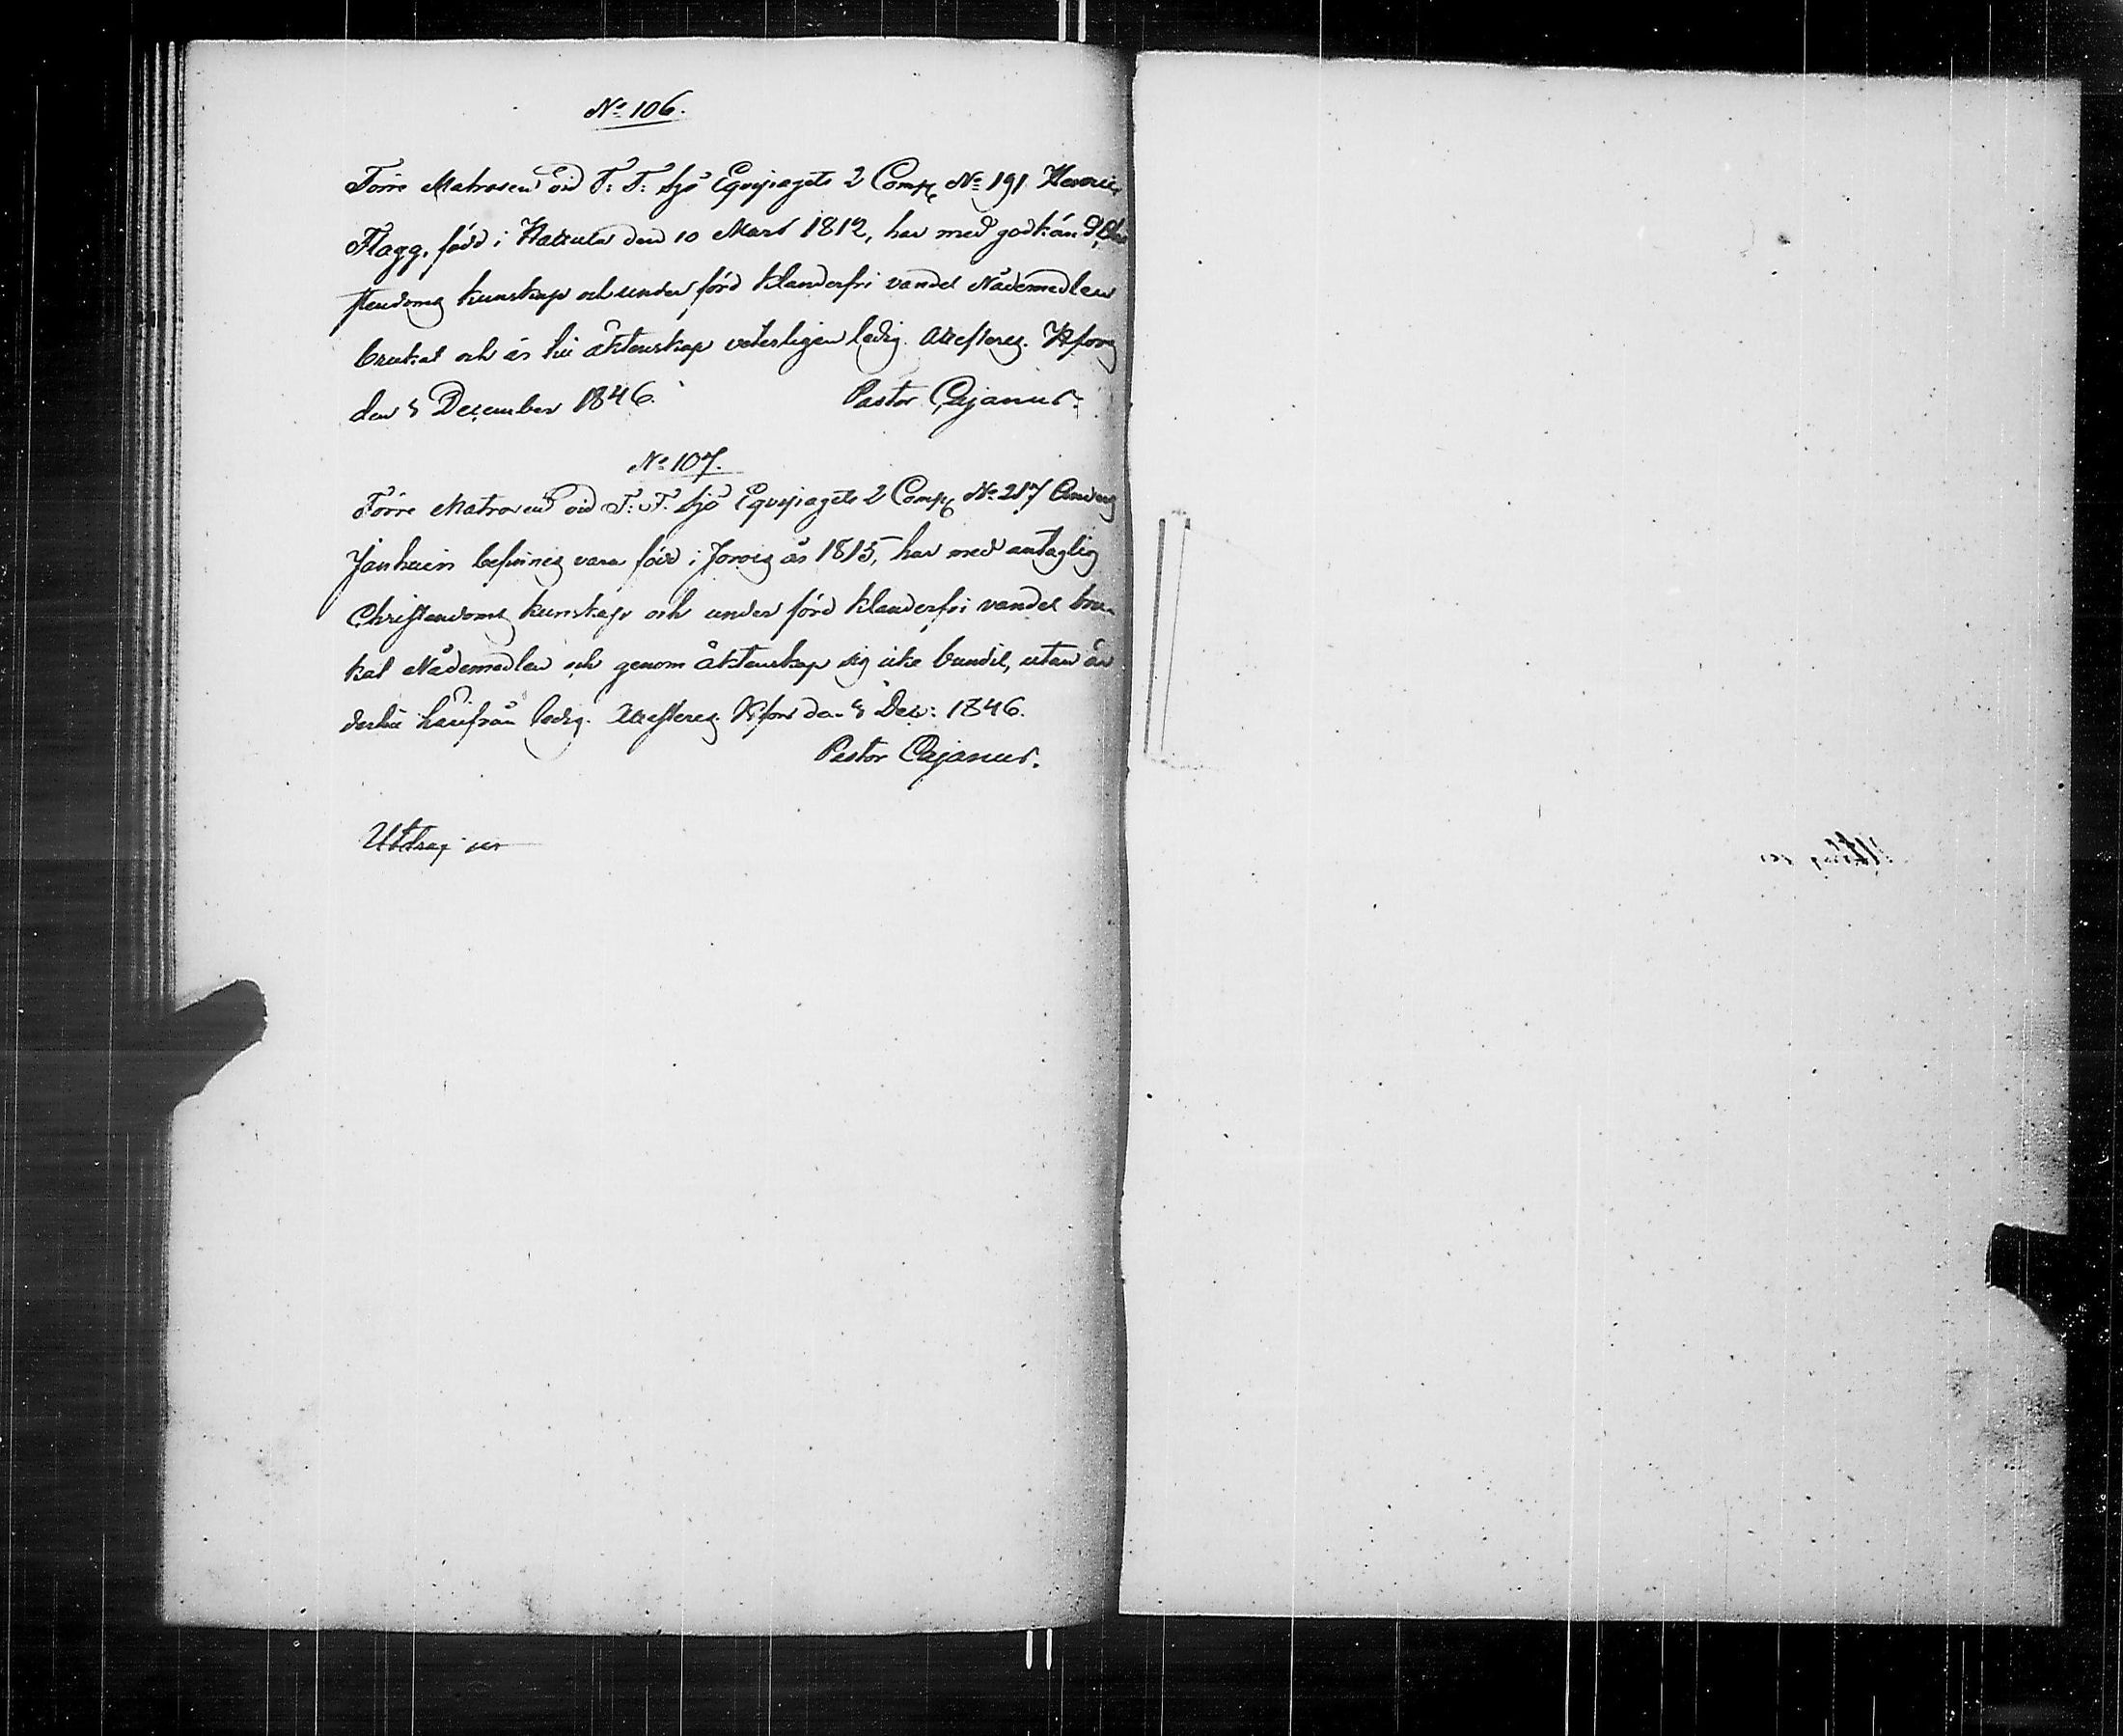 No 106.
Förre Matrosen vid F: F: Sjö Equipagets 2 Comp No 191 Henric
Flagg, född i Hattula den 10 Mars 1812, har med godkänd Chri
stendoms kunskap och under förd klanderfri vandel Nådemedlen
brukat och är till äktenskap veterligen ledig. Attesteras. Hfors
den 8 December 1846. Pastor Cajanus.
No 107.
Förre Matrosen vid F: F: Sjö Equipagets 2 Comp No 217 Anders
befinnes vara född i Jorois år 1815, har med antaglig
Christendoms kunskap och under förd klanderfri vandel bru-
kat Nådemedlen och genom äktenskap sig icke bundit, utan är
dertill härifrån ledig. Attesteras Hfors den 8 Dec: 1846.
Pastor Cajanus.
Utdrag ur